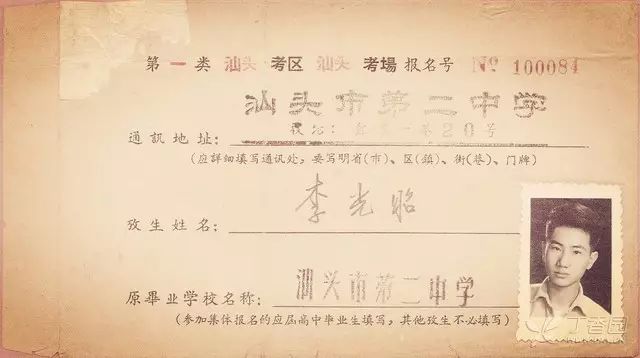 第一类 汕头 考区 汕头 考場 报名号 № 100084
汕头市第二中学
第20号
通訊地址:
(应詳細填写通讯处,要写明省(市)、区(鎮)、街(巷)、门牌)
李光昭
攷生姓名:
汕头市第二中学
原畢业学校名称:
(参加集体报名的应届高中毕业生填写,其他攷生不必填写)
丁香园